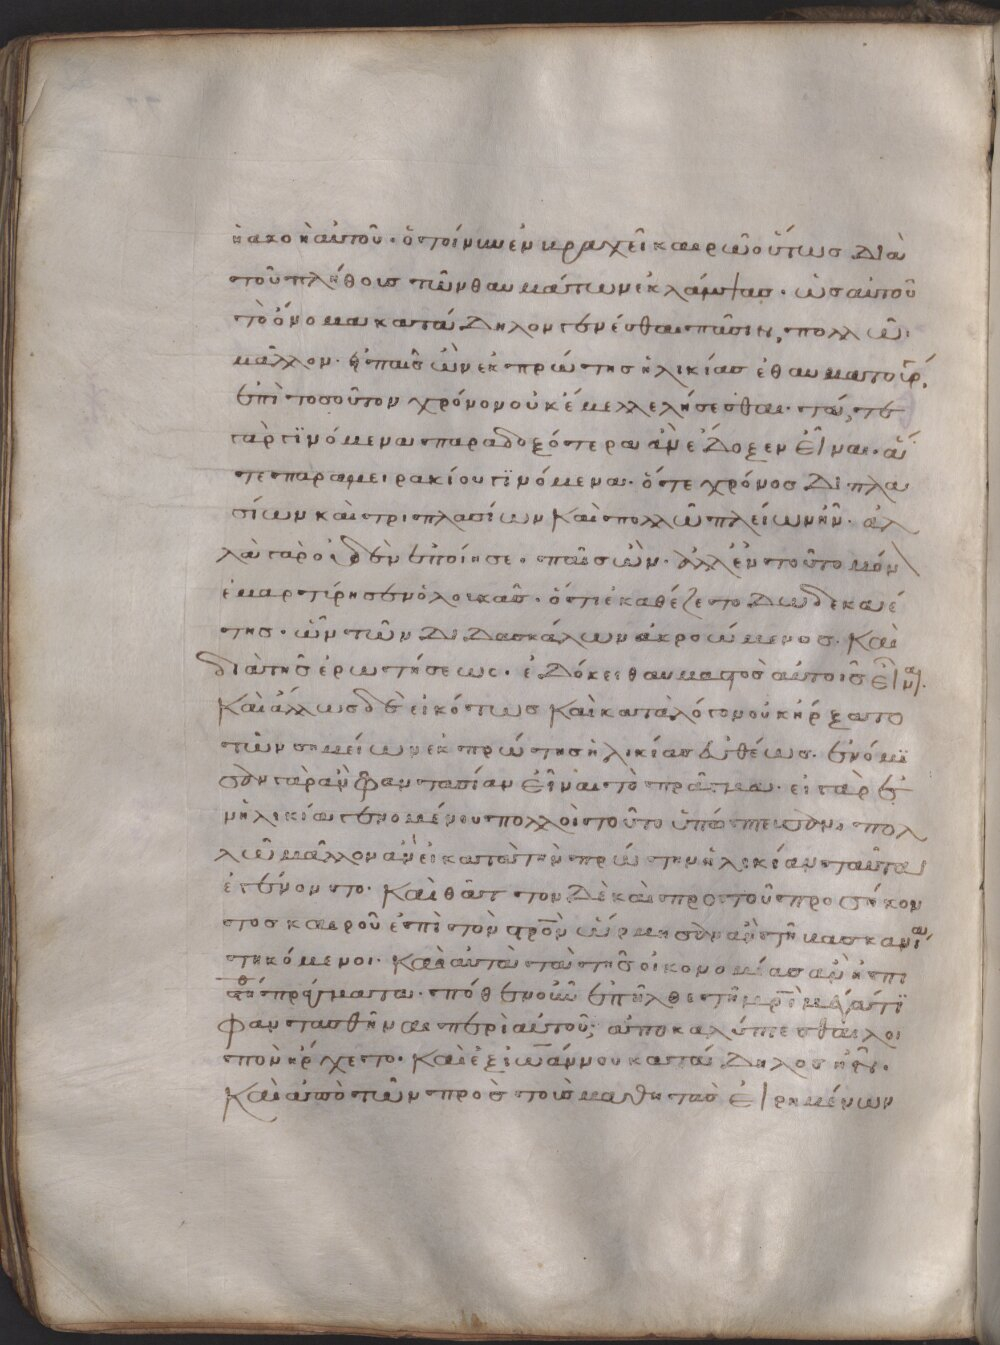 ἡ ἀκοὴ αὐτοῦ· ὁ τοίνυν ἐν βραχεῖ καιρῶ οὕτως διὰ
τοῦ πλήθους τῶν θαυμάτων ἐκλάμψας· ὡς αὐτοῦ
τὸ ὄνομα κατάδηλον γενέσθαι πᾶσιν, πολλῶ
μᾶλλον· εἰ παῖς ὢν ἐκ πρώτης ἡλικίας ἐθαυματούρ,
ἐπὶ τοσοῦτον χρόνον οὐκ ἔμελλε λήσεσθαι· τά τε
γὰρ γϊνόμενα παραδοξότερα ἂν ἔδοξεν εἶναι· ἅ
τε παρα μειρακίου γϊνόμενα· ὅ τε χρόνος διπλα
σίων καὶ τριπλασίων καὶ πολλῶ πλείων ἦν· ἀλ
λὰ γὰρ οὐδὲν ἐποίησε· παῖς ὢν· ἀλλ ἓν τοῦτο μόν
ἐμαρτύρησεν ὁ λουκᾶς· ὅτι ἐκαθέζετο δωδεκαέ
της· ὢν τῶν διδασκάλων ἀκροώμενος· καὶ
διὰ τῆς ἐρωτήσεως· ἐδόκει θαυμαστὸς αὐτοῖς εἶναι·
καὶ ἄλλως δὲ εἰκότως καὶ κατα λόγον οὐκ ἤρξατο
τῶν σημείων ἐκ πρώτης ἡλικίας εὐθέως· ἐνόμϊ
σαν γὰρ ἂν φαντασίαν εἶναι τὸ πρᾶγμα· εἰ γὰρ ἐ
ν ἡλικία γενομένου πολλοὶ τοῦτο ὑπώπτευσαν, πολ
λῶ μᾶλλον ἂν εἰ κατὰ τὴν πρώτην ἡλικίαν ταῦτα
ἐγένοντο· καὶ θᾶττον δὲ καὶ προ τοῦ προσήκον
τος καιροῦ ἐπὶ τὸν σ̅ρ̅ο̅ν ὥρμησαν ἂν τῆ βασκανία
τηκόμενοι· καὶ αὐτὰ τὰ τῆς οἰκονομίας ἂν ἠπι
στήθη πράγματα· πόθεν οὖν ἐπῆλθε τῆ μ̅ρ̅ὶ μέγα τϊ
φαντασθῆναι περὶ αὐτοῦ; ἀποκαλύπτεσθαι λοι
πὸν ἤρχετο· καὶ ἐξ ἰω̅άννου κατάδηλος ἦν·
καὶ ἀπὸ τῶν πρὸς τοὺς μαθητὰς εἰρημένων